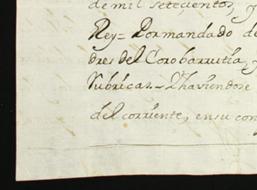 de mil setecientos, y
Rey = Por mandado de
dres del Coro barrutia, y
Rubricas = Yhaviendose
del corriente, en su con